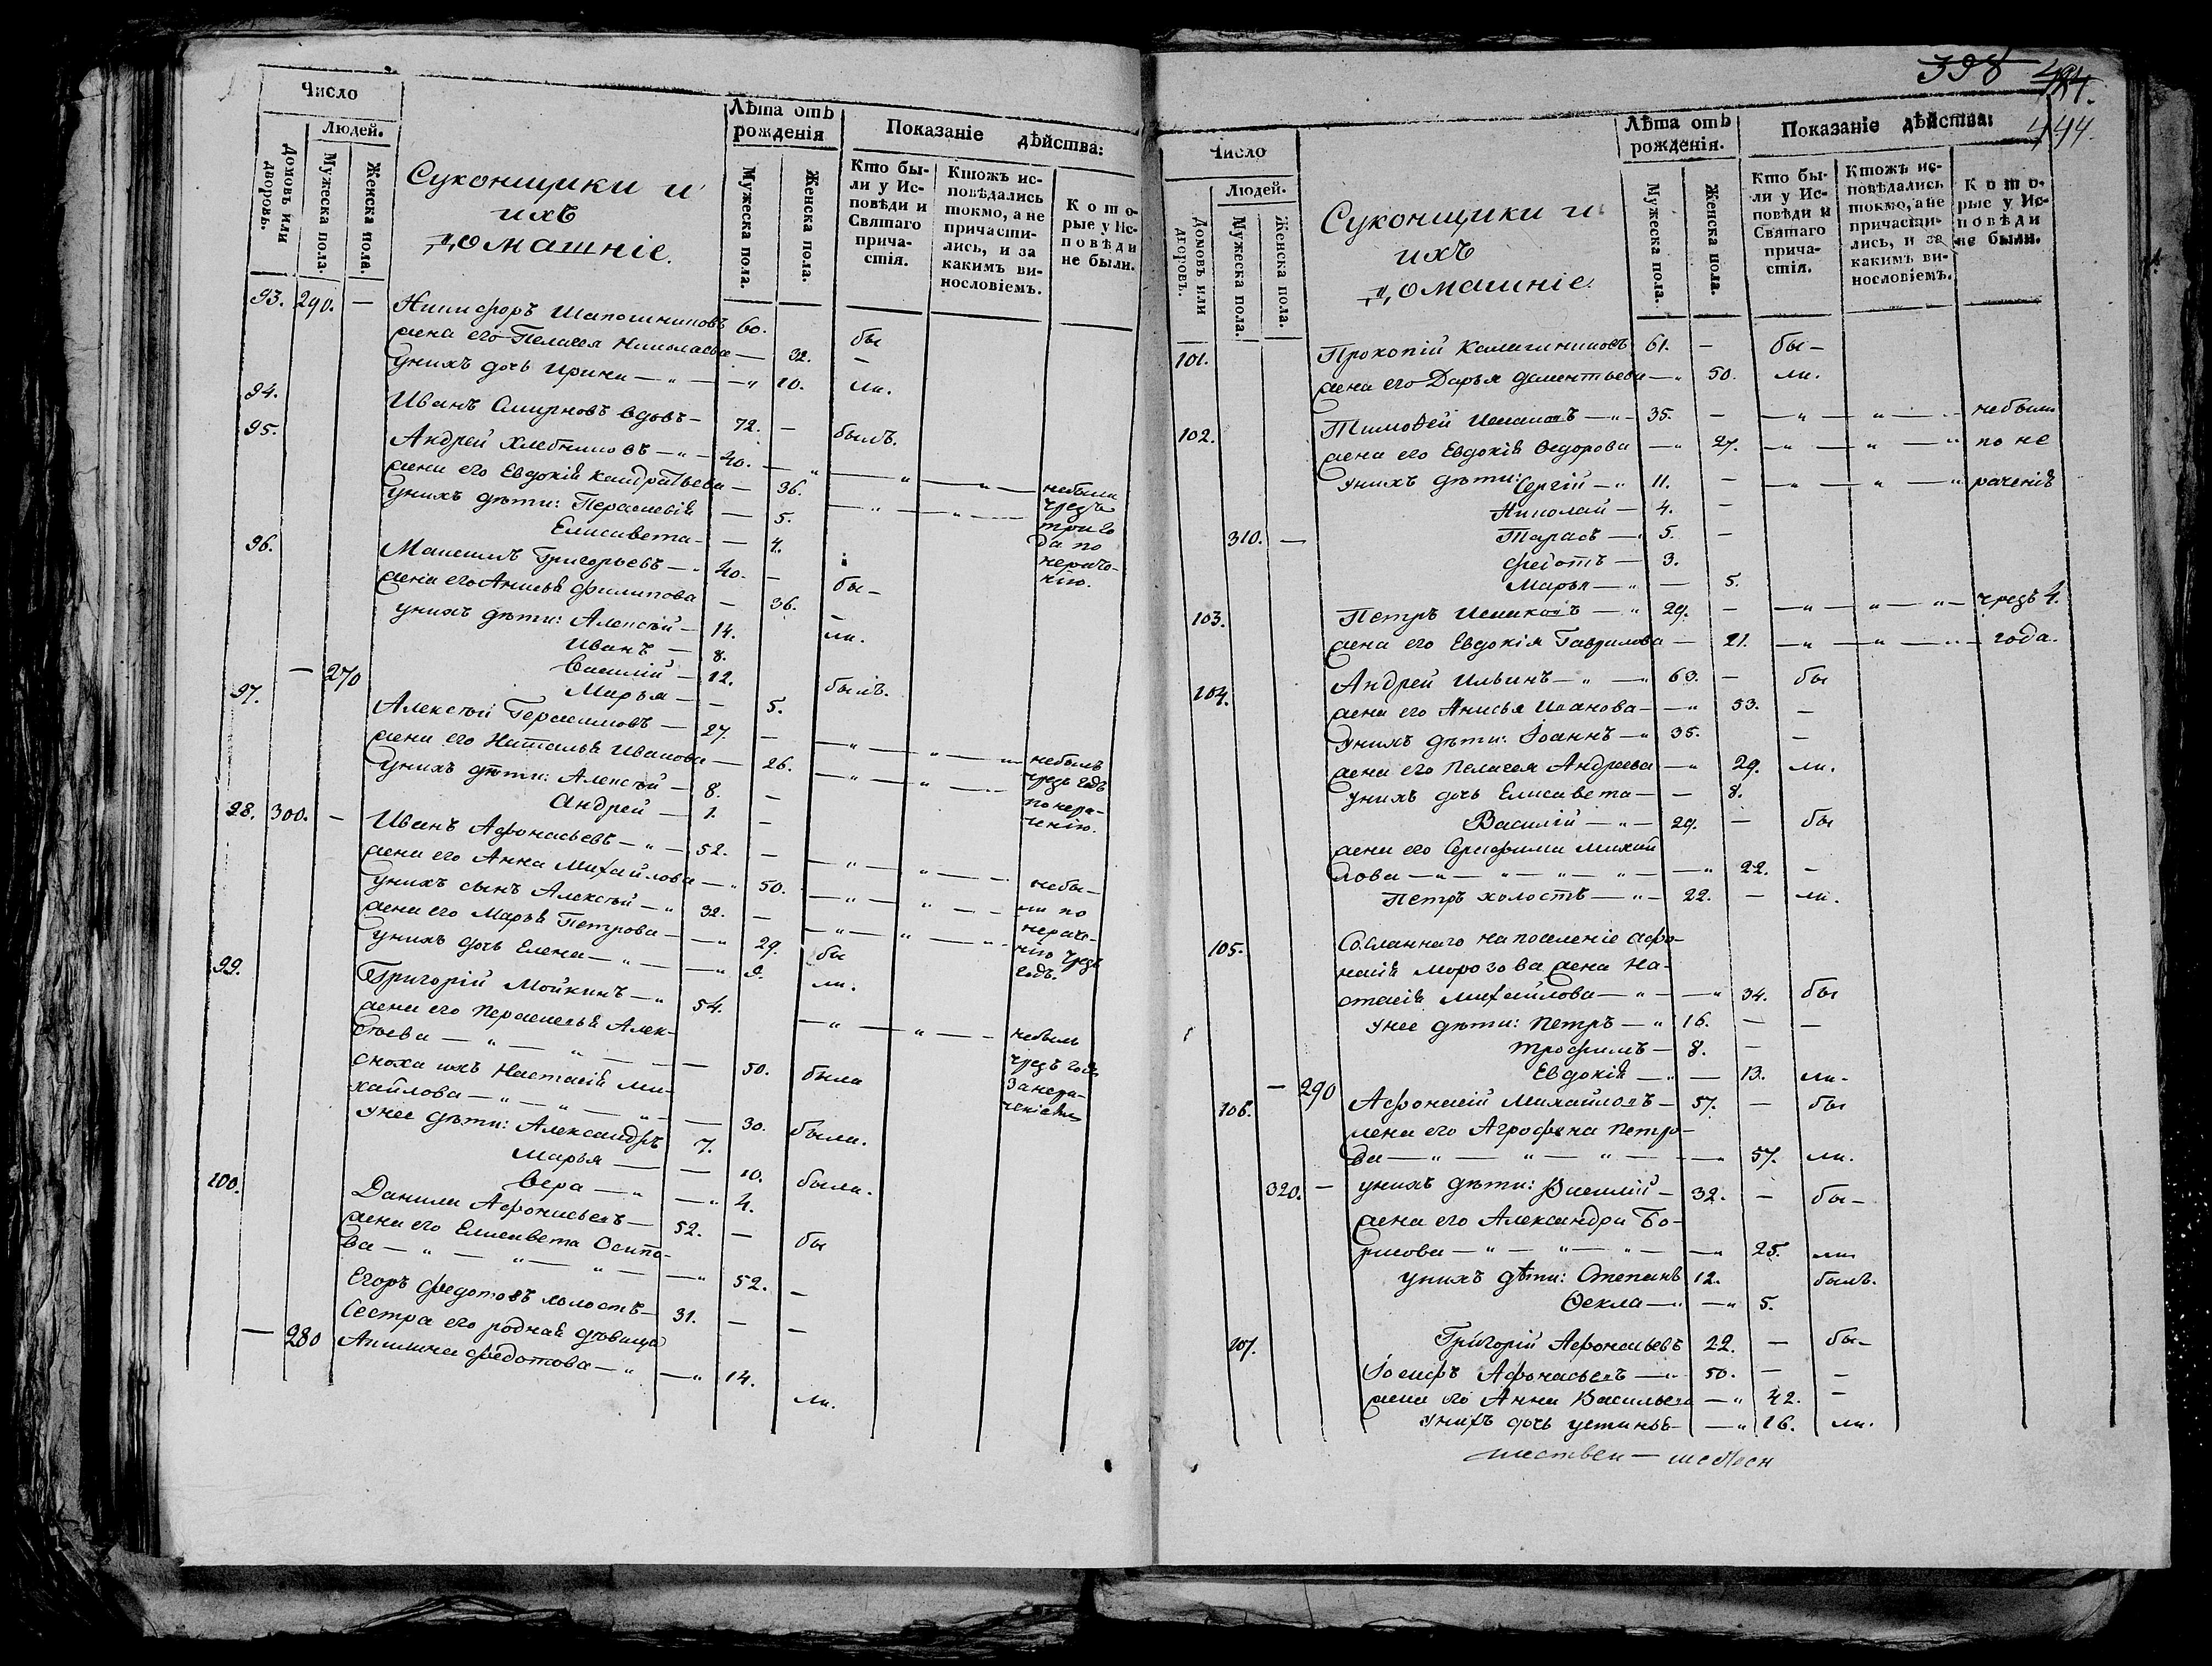 Число
Людей.
Домовъ или дворовъ.
Мужеска пола.
Женска пола.
Суконщики и
ихъ
домашніе.
Лѣта отъ рожденія
Мужеска пола.
Женска пола.
Показаніе дѣйства:
Кто были у Исповѣди и Святаго причастія.
Ктожъ исповѣдались токмо, а не причастились, и за какимъ винословіемъ.
Которые у Исповѣди не были.
93. 290. — Никифоръ Шапошниковъ 60. бы
жена его Пелагея Николаева — 32. —
у нихъ дочь Ирина — „ — „ 10. ли.
94. Иванъ Смирновъ вдовъ — 72. — былъ.
95. Андрей Хлебниковъ — „ — 40. — „ — „ — „ — небыли
жена его Евдокія Кандратьева — 36. — „ — „ — чрезъ
у нихъ дѣти: Параскевія — 5. три го
Елисавета — — 4. да по
96. Максимъ Григорьевъ — „ 40. — бы — нераче-
жена его Анисья Филипова — 36. — нію.
у нихъ дѣти: Алексѣй — 14. ли.
Иванъ — 8.
— 270 Василій — 12. былъ.
Марья — — 5.
97. Алексѣй Герасимовъ — 27. — — „ — „ — „ небылъ
жена его Наталья Иванова — 26. — „ — „ — чрезъ годъ
у нихъ дѣти: Алексѣй — 8. — по нера-
Андрей — 1. — ченію.
98. 300. — Иванъ Афонасьевъ — „ — 52. — — „ — „ — небы-
жена его Анна Михайлова — „ 50. — „ — „ — ли по
у нихъ сынъ Алексѣй — „ 32. — — „ — „ — „ нераче-
жена его Марья Петрова — — „ 29. бы нію чрезъ
у нихъ дочь Елена — „ — — „ 9. ли. годъ.
99. Григорій Мойкинъ — „ 54. — „ — „ — небылъ
жена его Параскевья Алек- чрезъ годъ
сѣева — „ — „ — — — 50. была за нера-
сноха ихъ Настасія Ми- ченіемъ
хайлова — „ — „ — „ — — 30. была.
у нее дѣти: Александръ 7.
Марья — — 10. была.
Вера — „ — „ 4.
100. Данила Афонасьевъ — 52. — бы
жена его Елисавета Осипо-
ва — „ — „ — „ — — „ 52. —
Егоръ Федотовъ холостъ — 31. — —
Сестра его родная дѣвица
— 280 Акилина Федотова — „ — „ 14. ли.
398 424.
444.
Число
Людей.
Домовъ или дворовъ.
Мужеска пола.
Женска пола.
Суконщики и
ихъ
домашніе
Лѣта отъ рожденія.
Мужеска пола.
Женска пола.
Показаніе дѣйства:
Кто были у Исповѣди и Святаго причастія.
Ктожъ исповѣдались токмо, а не причастились, и за какимъ винословіемъ.
Которые у Исповѣди не были.
101. Прокопій Калашниковъ 61. — бы —
жена его Дарья Дементьева — „ 50. ли.
102. Тимоѳей Исаковъ — „ — 35. — — „ — „ — небыли
жена его Евдокія Ѳедорова — „ 27. — „ — „ — „ по не
у нихъ дѣти: Сергій — „ 11. — — „ — „ — „ раченію
Николай — 4. —
310. — Тарасъ — „ 5. —
Федотъ — 3.
Марья — „ — 5.
103. Петръ Исаковъ — „ 29. — — „ — „ — „ — чрезъ 4.
жена его Евдокія Гаврилова — 21. — „ — „ — „ — года.
104. Андрей Ильинъ — „ — „ 63. — бы
жена его Анисья Иванова — — „ 53. —
у нихъ дѣти: Іоаннъ — „ 35. —
жена его Пелагея Андреева — „ 29. ли.
у нихъ дочь Елисавета — — 8.
Василій — „ — 29. — бы
жена его Серафима Михай
лова — „ — „ — „ — „ — — „ 22. —
Петръ холостъ — „ — 22. — ли.
105. Сосланнаго на поселеніе Афо-
насія Морозова жена На-
стасія Михайлова — „ — — „ 34. бы
у нее дѣти: Петръ — „ 16. — —
Трофимъ — 8. —
Евдокія — „ — 13. ли —
— 290
106. Афонасій Михайловъ — 57. — бы
жена его Аграфена Петро-
ва — „ — „ — „ — — „ 57. ли.
320. — у нихъ дѣти: Василій — 32. — бы —
жена его Александра Бо-
рисова — „ — „ — „ — — „ 25. ли
у нихъ дѣти: Степанъ 12. былъ.
Ѳекла — „ — „ 5.
Григорій Афонасьевъ 22. — бы —
107. Іосифъ Афонасьевъ — „ 50. — —
жена его Анна Васильева — „ 42. —
у нихъ дочь Устинья — — „ 16. ли.